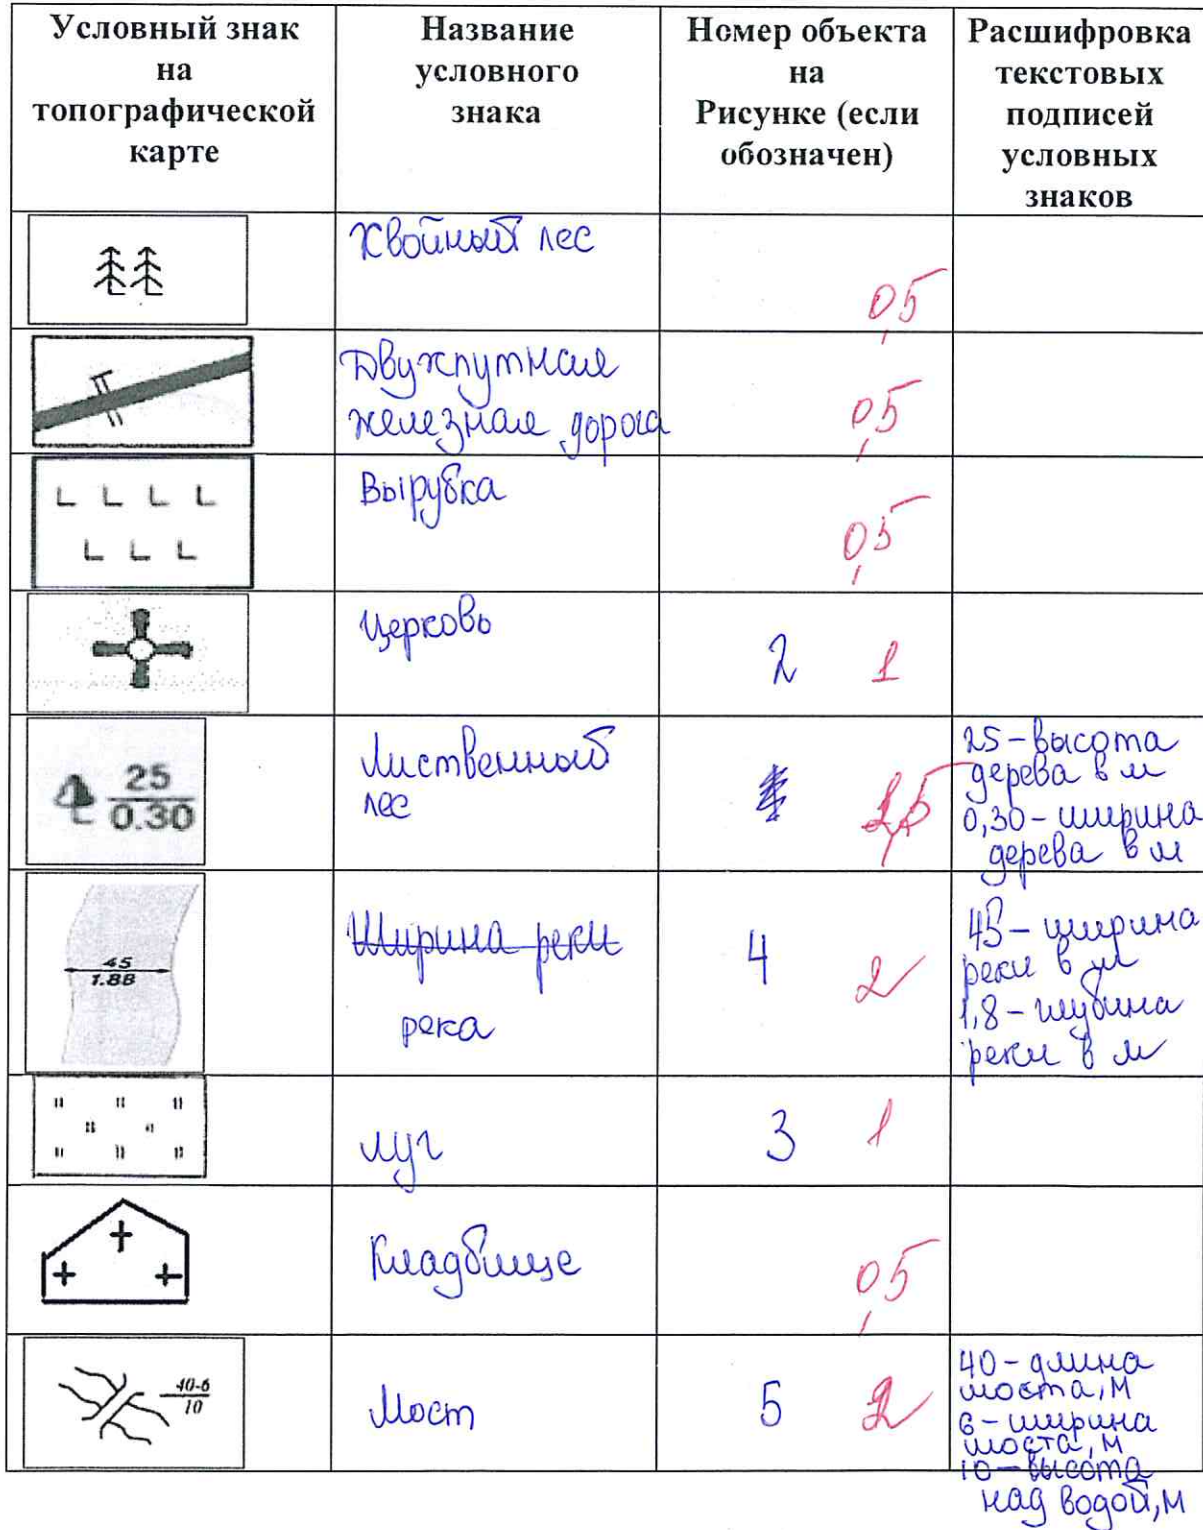 Условный знак
на
топографической
карте
Название
условного
знака
Номер объекта
на
Рисунке (если
обозначен)
Расшифровка
текстовых
подписей
условных
знаков
Хвойный лес
0,5
Двухпутная
железная дорога
0,5
Вырубка
0,5
Церковь
2
1
25
0.30
Лиственный
лес
1,5
25 - высота
дерева в м
0,30 - ширина
дерева в м
45
1.8В
Ширина реки
река
4
2
45 - ширина
реки в м
1,8 - глубина
реки в м
луг
3
1
Кладбище
0,5
40-6
10
Мост
5
2
40 - длина
моста, м
6 - ширина
моста, м
10 - высота
над водой, м